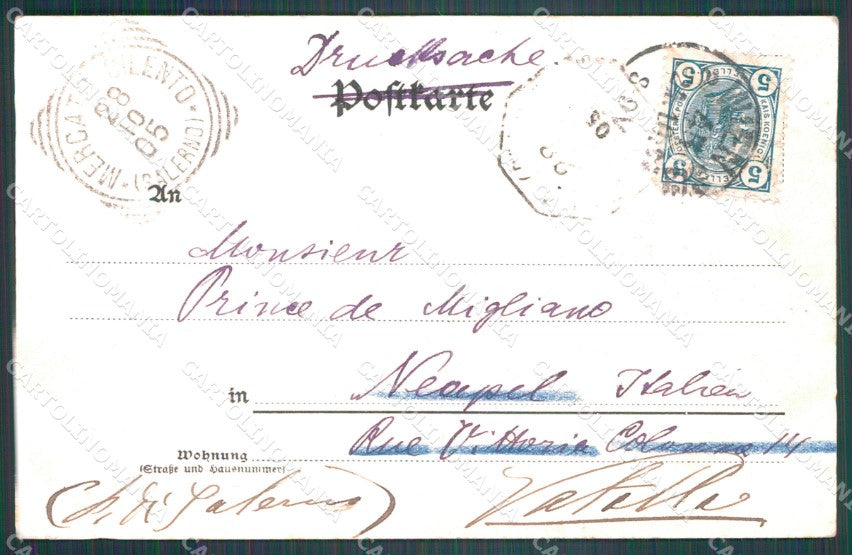 Drucksache
Postkarte
MERCATO CILENTO
(SALERNO)
05
AGS
5 5
KAIS. KOENIGL.
5 5
An
Monsieur
Prince de Migliano
in Neapel Italien
Wohnung
(Straße und Hausnummer)
Rue Vittoria Colonna 14
(P. di Salerno)
Vatolla
CARTOLINOMANIA